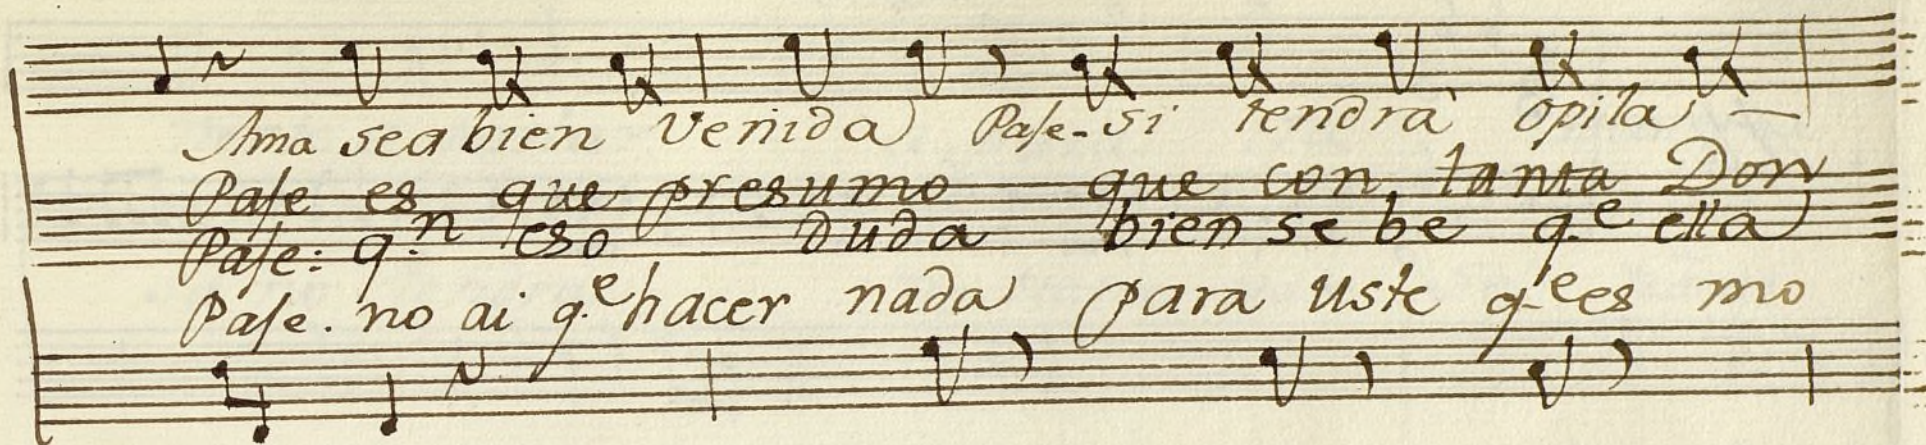 Ama sea bien venida Pase - si tendrà opila -
Pase es que presumo que con tanta Don
Pase: q.n eso duda bien se be q.e ella
Pase. no ai q.e hacer nada para Uste q.e es mo